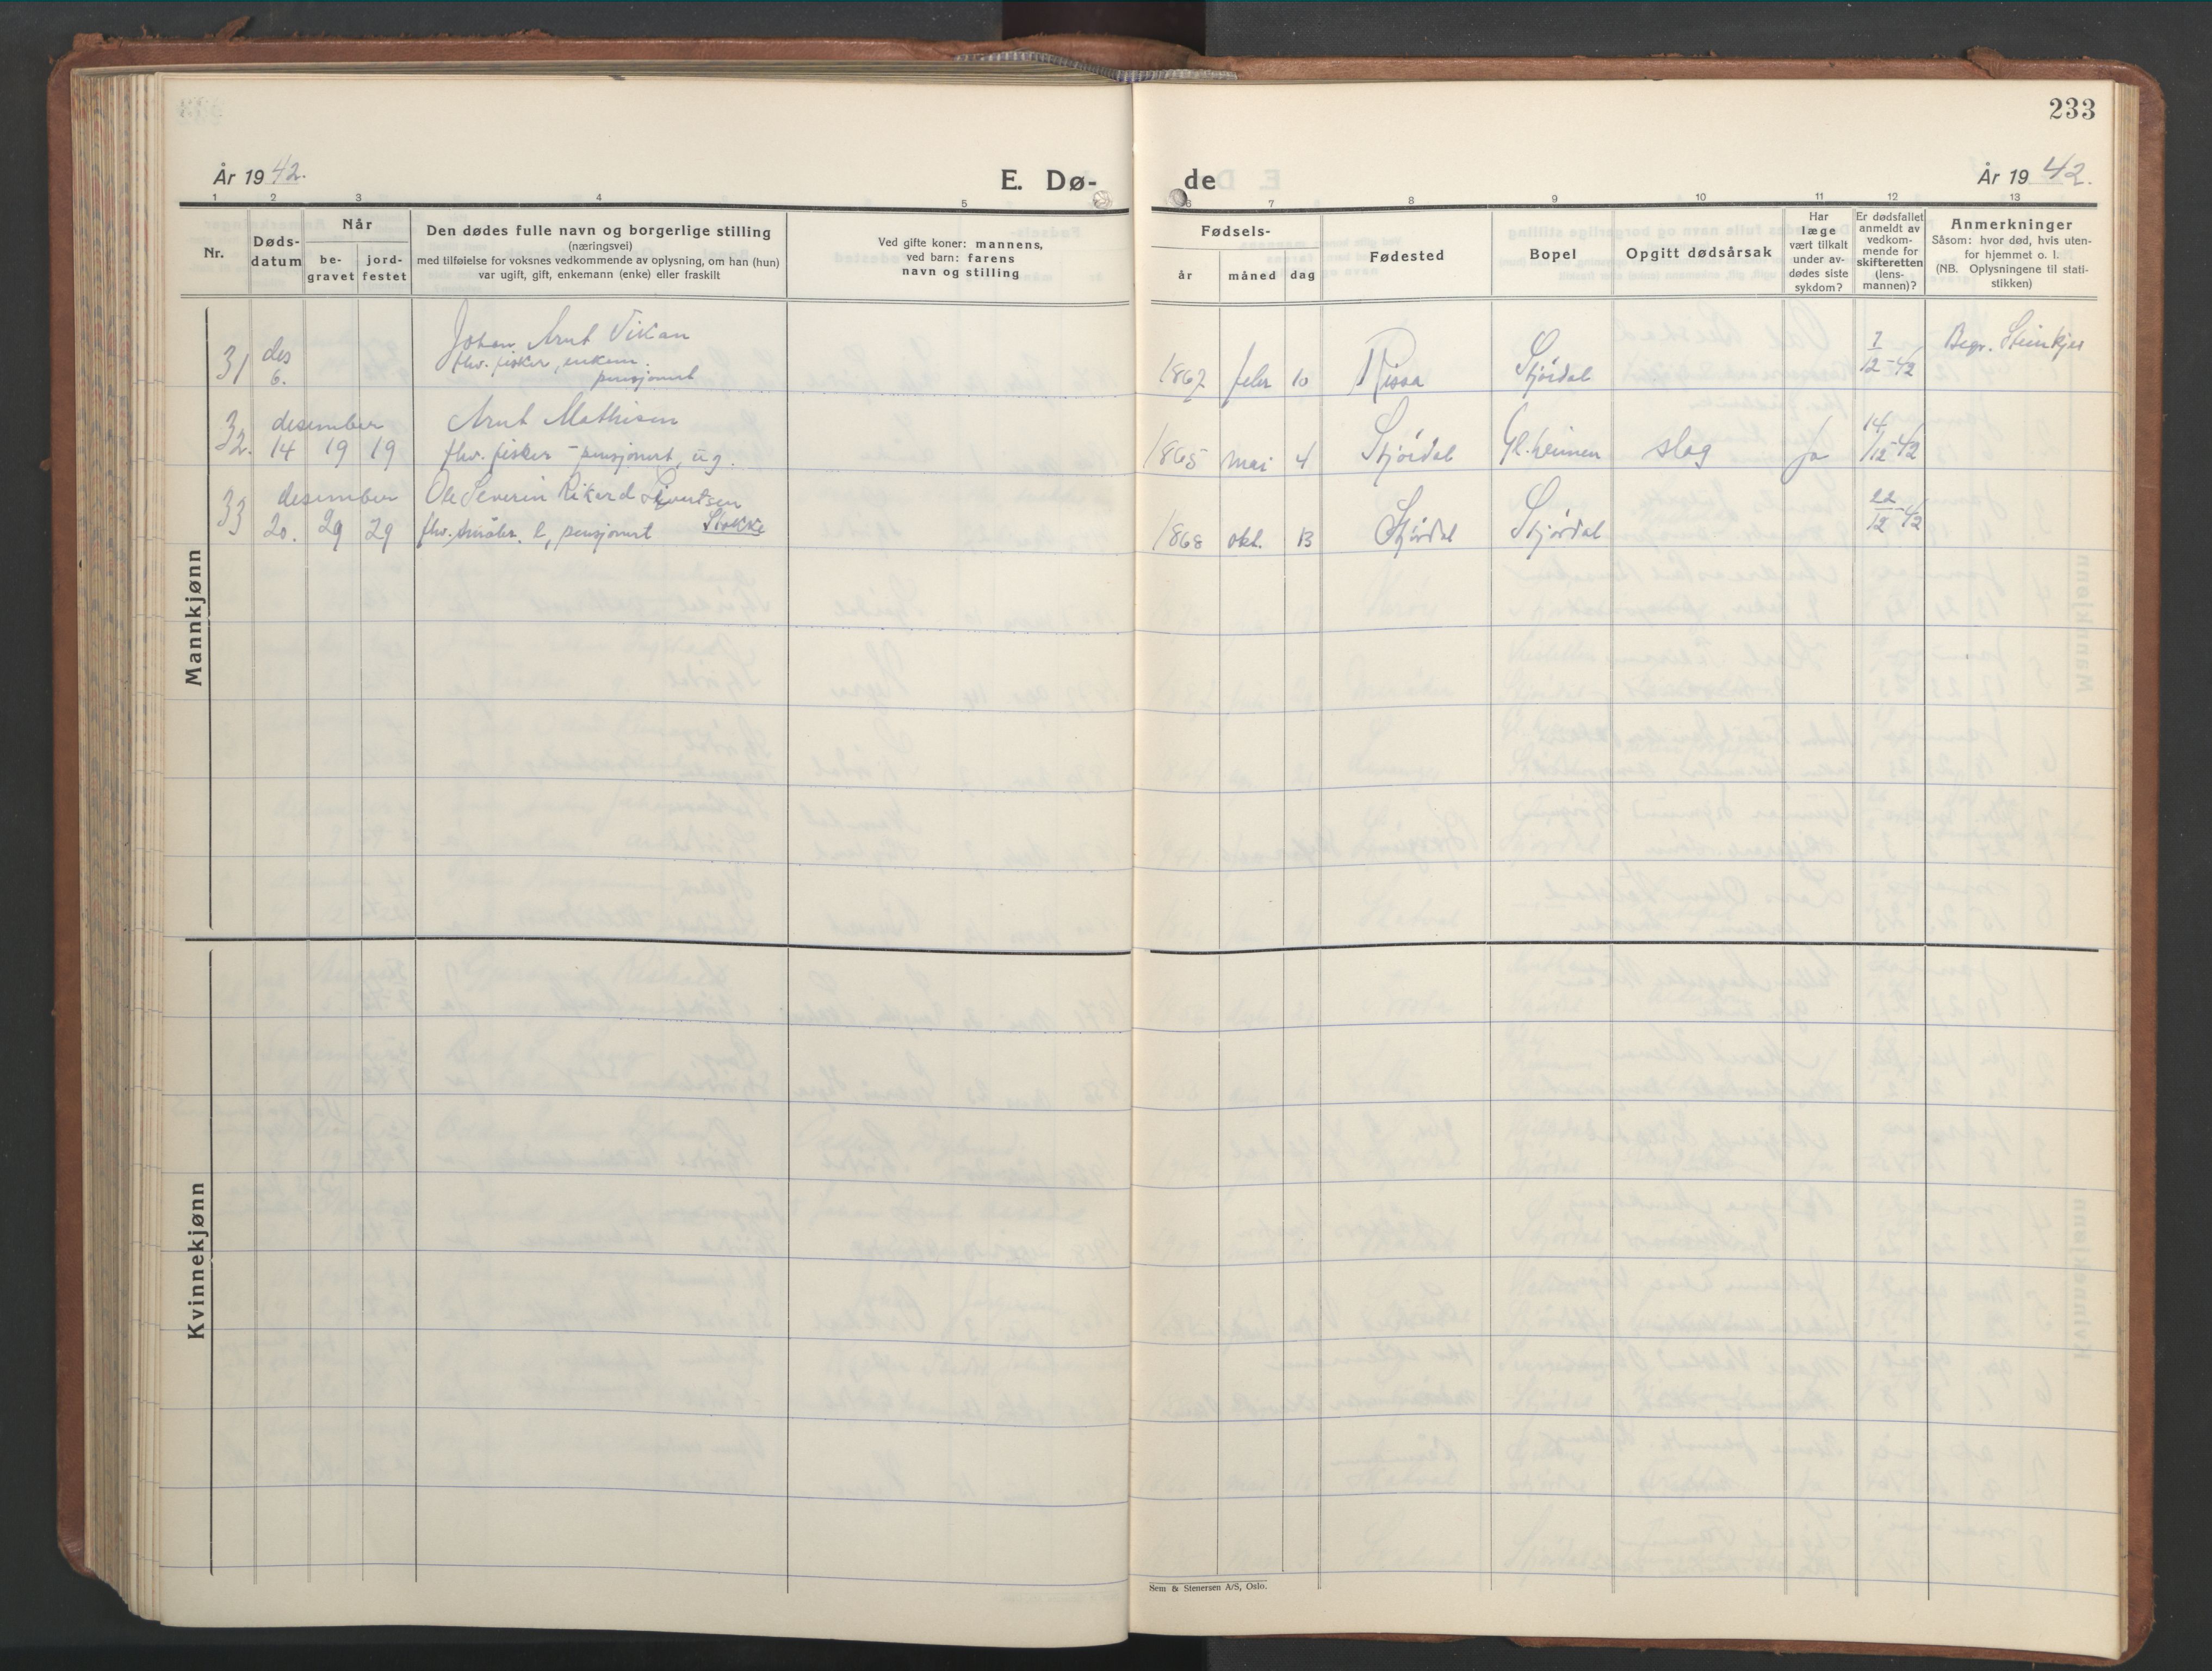 233
År 1942.
E. Dø-
de
År 1942.
1 2 3 4 5 6 7 8 9 10 11 12 13
Nr.
Døds-
datum
Når
be-
gravet
jord-
festet
Den dødes fulle navn og borgerlige stilling
(næringsvei)
med tilføielse for voksnes vedkommende av oplysning, om han (hun)
var ugift, gift, enkemann (enke) eller fraskilt
Ved gifte koner: mannens,
ved barn: farens
navn og stilling
Fødsels-
år måned dag
Fødested
Bopel
Opgitt dødsårsak
Har
læge
vært tilkalt
under av-
dødes siste
sykdom?
Er dødsfallet
anmeldt av
vedkom-
mende for
skifteretten
(lens-
mannen)?
Anmerkninger
Såsom: hvor død, hvis uten-
for hjemmet o. l.
(NB. Oplysningene til stati-
stikken)
Mannkjønn
31 des 6. Johan Arnt Vikan
fhv. fisker, enkem.
pensjonert
1867 febr 10 Rissa Stjørdal 7/12-42 Begr. Steinkjer
32. desember
14 19 19 Arnt Mathisen
fhv. fisker - pensjonert, ug.
1865 mai 4 Stjørdal Gl.heimen slag ja 14/12-42
33 desember
20. 29 29 Ole Severin Rikard Sivertsen
Stokke
fhv. småbr. e, pensjonert
1868 okt. 13 Stjørdal Stjørdal 22/12-42
Kvinnekjønn
Sem & Stenersen A/S, Oslo.